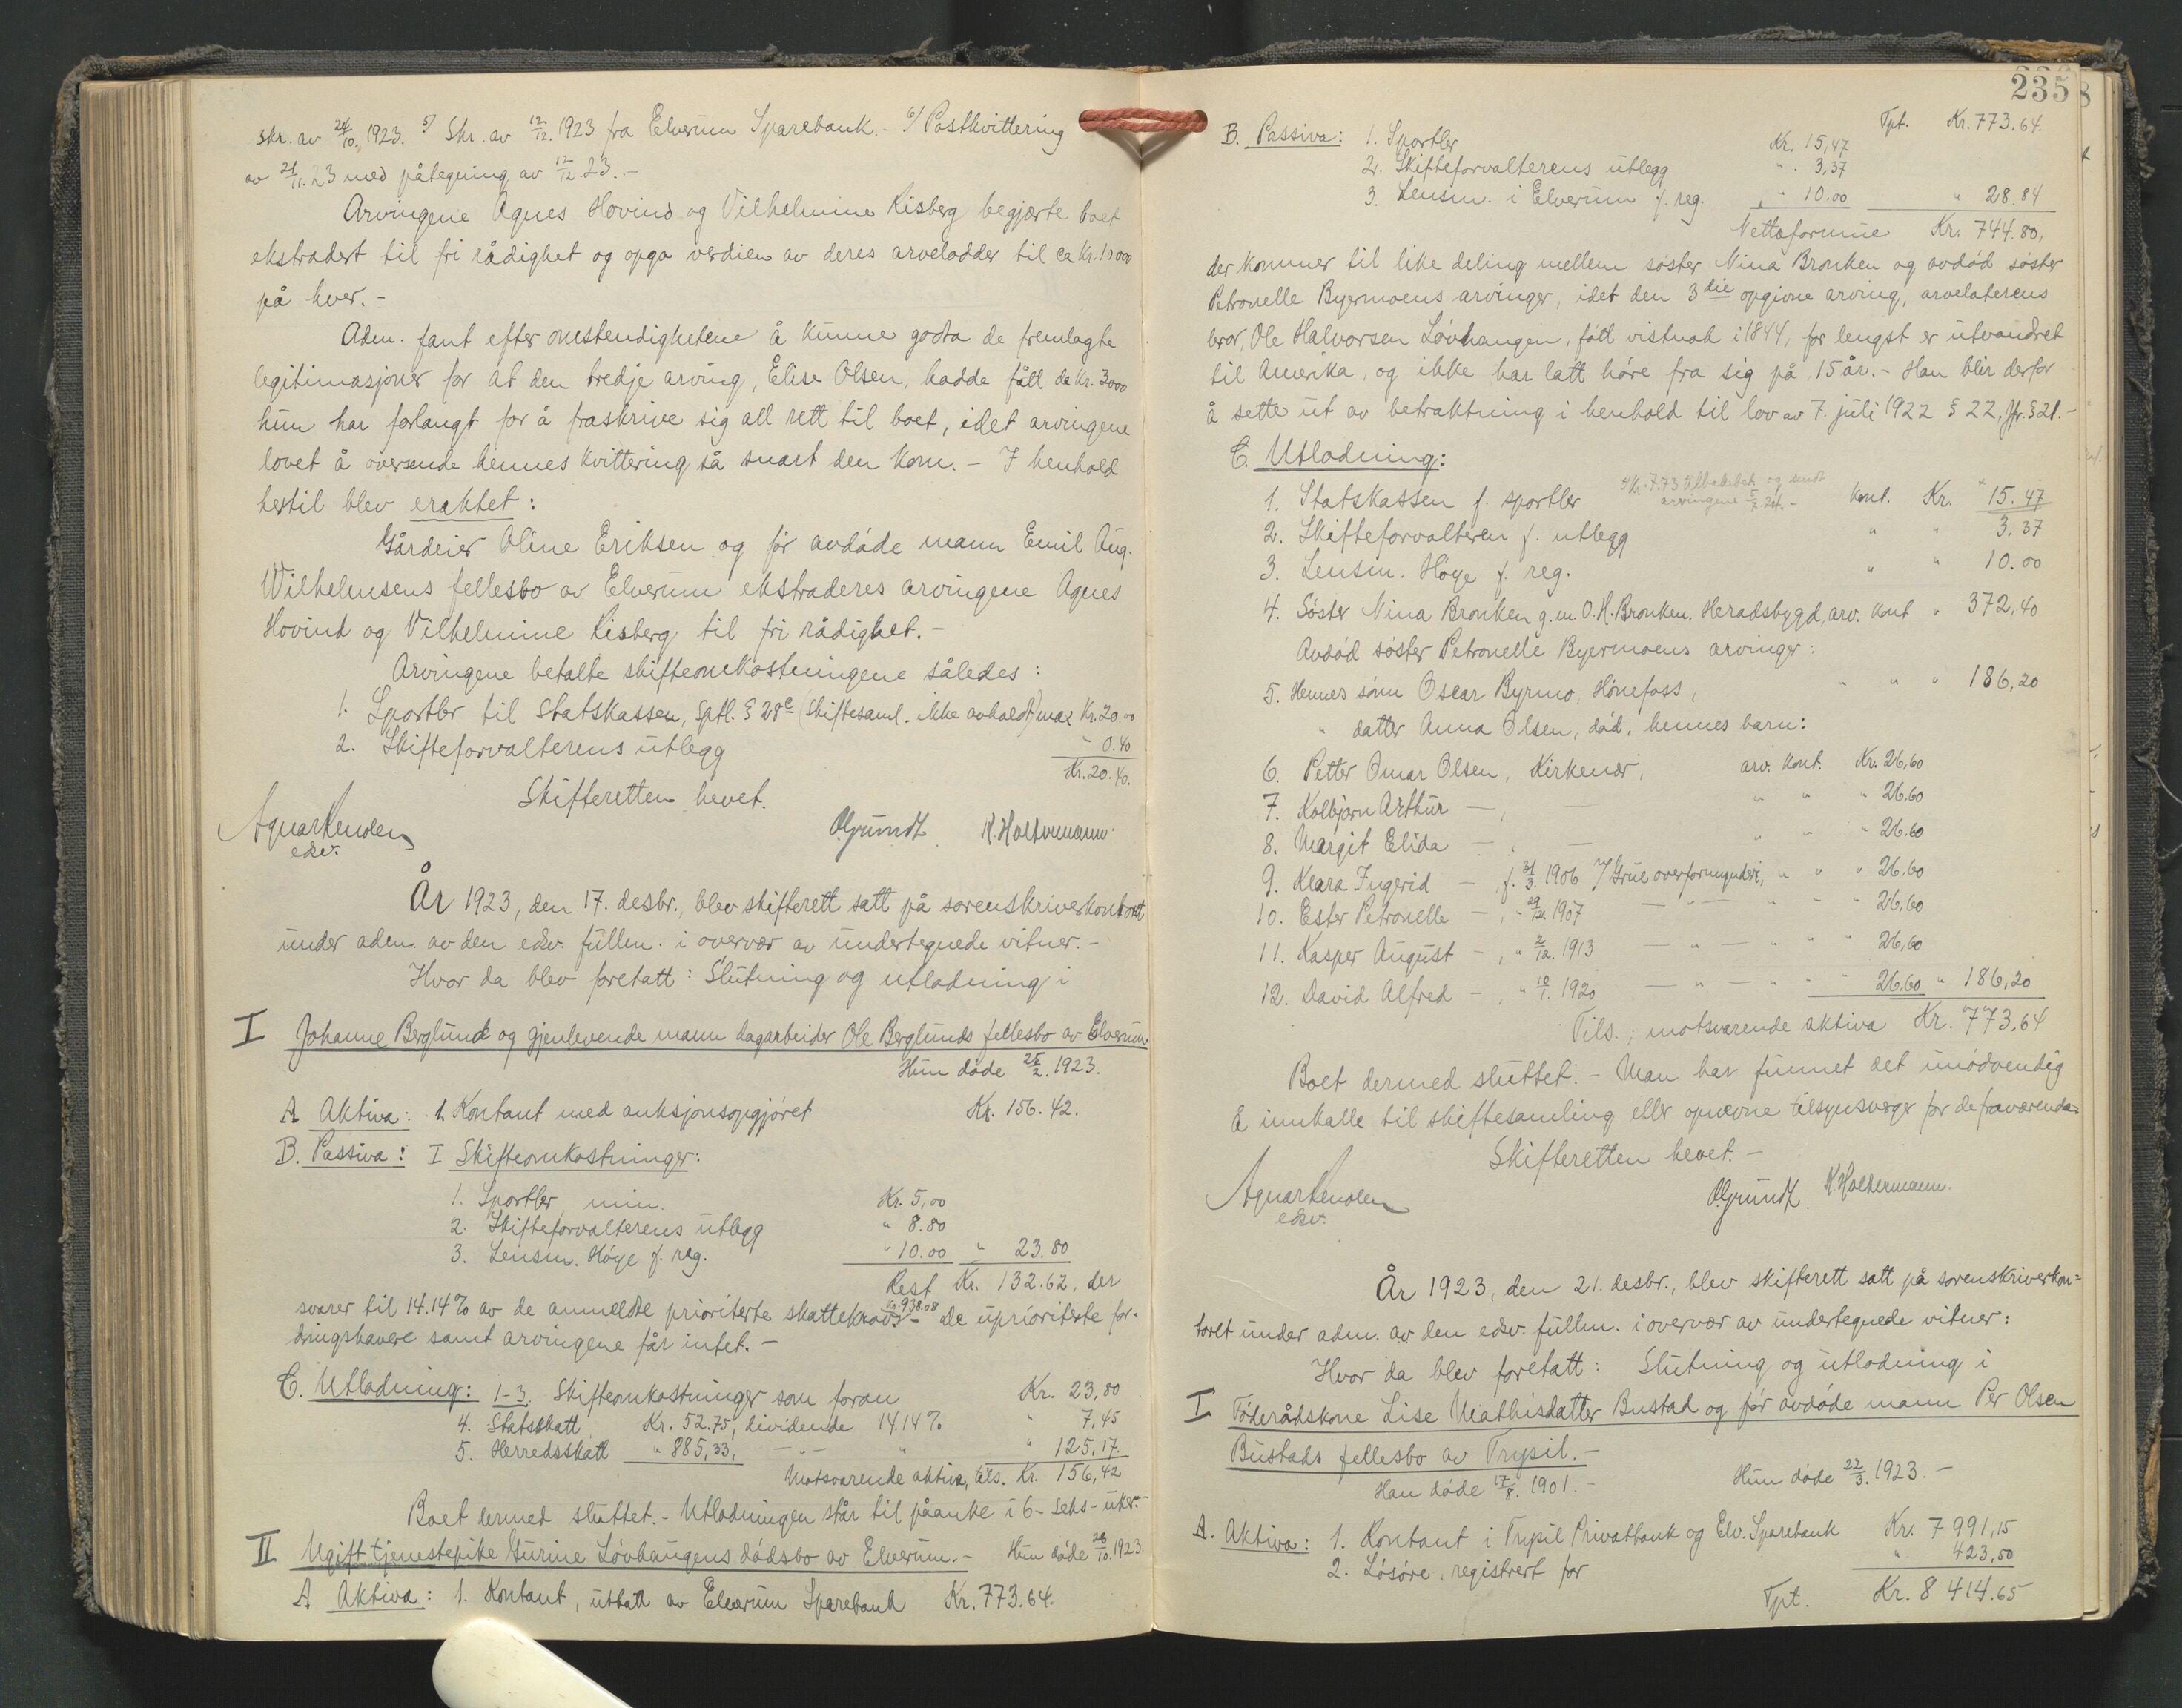 skr. av 24/10. 1923. 5) Skr. av 12/12. 1923 fra Elverum Sparebank. - 6) Postkvittering
av 21/11. 23 med påtegning av 12/12. 23. -
Arvingene Agnes Hovind og Vilhelmine Risberg begjærte boet
ekstradert til fri rådighet og opga verdien av deres arvelodder til ca Kr. 10 000
på hver. -
Adm. fant efter omstendighetene å kunne godta de fremlagte
legitimasjoner for at den tredje arving, Elise Olsen, hadde fått de Kr. 3000
hun har forlangt for å fraskrive sig all rett til boet, idet arvingene
lovet å oversende hennes kvittering så snart den kom. - I henhold
hertil blev eraktet:
Gårdeier Oline Eriksen og før avdøde mann Emil Aug.
Wilhelmsens fellesbo av Elverum ekstraderes arvingene Agnes
Hovind og Vilhelmine Risberg til fri rådighet. -
Arvingene betalte skifteomkostningene således:
1. Sportler til Statskassen, Sptl. § 28c (Skiftesaml. ikke avholdt) max Kr. 20.00
2. Skifteforvalterens utlegg " 0.40
Kr. 20.40.
Skifteretten hevet.
edsv. O. Grundt K. Holtermann
År 1923, den 17. desbr., blev skifterett satt på sorenskriverkontoret
under adm. av den edsv. fullm. i overvær av undertegnede vitner. -
Hvor da blev foretatt: Slutning og utlodning i
I Johanne Berglund og gjenlevende mann dagarbeider Ole Berglunds fellesbo av Elverum
Hun døde 25/2. 1923.
A Aktiva: 1. Kontant med auksjonsopgjøret Kr. 156.42.
B. Passiva: I Skifteomkostninger:
1. Sportler, min. Kr. 5,00
2. Skifteforvalterens utlegg " 8.80
3. Lensm. Høye f. reg. " 10.00 " 23.80
Rest Kr. 132.62, der
svarer til 14.14% av de anmeldte prioriterte skattekrav Kr. 938.08 - De uprioriterte for-
dringshavere samt arvingene får intet. -
C. Utlodning: 1-3. Skifteomkostninger som foran Kr. 23,80
4. Statsskatt Kr. 52.75, dividende 14.14% " 7,45
5. Herredsskatt " 885,33, -"- " " 125,17.
Motsvarende aktiva, tils. Kr. 156,42
Boet dermed sluttet. - Utlodningen står til påanke i 6 - seks - uker. -
II Ugift tjenestepike Gurine Løvhaugens dødsbo av Elverum. - Hun døde 26/10. 1923.
A Aktiva: 1. Kontant, uttatt av Elverum Sparebank Kr. 773.64.
235
Tpt. Kr. 773.64.
B. Passiva: 1. Sportler Kr. 15,47
2. Skifteforvalterens utlegg " 3,37
3. Lensm. i Elverum f. reg. " 10.00 " 28.84
Nettoformue Kr. 744.80,
der kommer til like deling mellem søster Nina Bronken og avdød søster
Petronelle Byermoens arvinger, idet den 3die opgivne arving, arvelaterens
bror, Ole Halvorsen Løvhaugen, født vistnok i 1844, for lengst er utvandret
til Amerika, og ikke har latt høre fra sig på 15 år. - Han blir derfor
å sette ut av betraktning i henhold til lov av 7. juli 1922 § 22, jfr. § 21. -
C. Utlodning:
x) Kr. 7.73 tilbakebet. og sendt
arvingene
1. Statskassen f. sportler kont. Kr. x 15.47
2. Skifteforvalteren f. utlegg " " 3.37
3. Lensm. Høye f. reg. " " 10.00
4. Søster Nina Bronken g.m. O. H. Bronken, Heradsbygd, arv. kont " 372,40
Avdød søster Petronelle Byermoens arvinger:
5. Hennes sønn Oscar Byrmo, Hønefoss, " " " 186,20
" datter Anna Olsen, død, hennes barn:
6. Petter Omar Olsen, Kirkenær, arv. kont. Kr. 26,60
7. Kolbjørn Arthur - , - " " " 26.60
8. Margit Elida - , - " " " 26.60
9. Klara Ingerid - , f. 31/3. 1906 v/ Grue overformynderi, " " " 26.60
10. Ester Petronelle - , " 29/12. 1907 - " - " " " 26,60
11. Kasper August - , " 2/12. 1913 - " - " " " 26,60
12. David Alfred - , " 10/1. 1920 - " - " " " 26,60 " 186,20
Tils., motsvarende aktiva Kr. 773,64
Boet dermed sluttet. - Man har funnet det unødvendig
å innkalle til skiftesamling eller opnevne tilsynsverge for de fraværende. -
Skifteretten hevet. -
edsv. O. Grundt. K. Holtermann.
År 1923, den 21. desbr., blev skifterett satt på sorenskriverkon=
toret under adm. av den edsv. fullm. i overvær av undertegnede vitner:
Hvor da blev foretatt: Slutning og utlodning i
I Føderådskone Lise Mathisdatter Bustad og før avdøde mann Per Olsen
Bustads fellesbo av Trysil. -
Han døde 17/8. 1901. - Hun døde 22/3. 1923. -
A. Aktiva: 1. Kontant i Trysil Privatbank og Elv. Sparebank Kr. 7 991,15
2. Løsøre, registrert for " 423,50
Tpt. Kr. 8 414.65